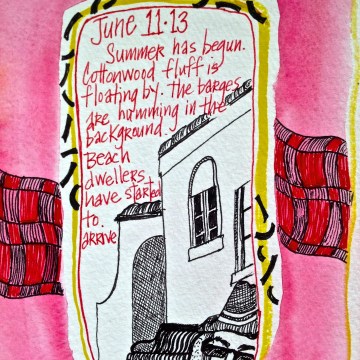 June 11·13
Summer has begun.
Cottonwood fluff is
floating by. the barges
are humming in the
background.
Beach
dwellers
have started
to
arrive